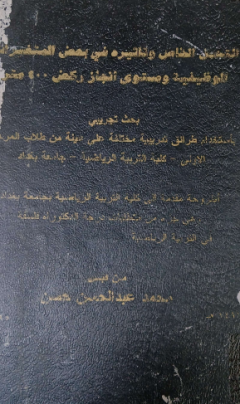 التحمل الخاص وتأثيره في بعض المتغيرات
الوظيفية ومستوى انجاز ركض ٤٠٠ متر
بحث تجريبي
باستخدام طرائق تدريبية مختلفة على عينة من طلاب المرحلة
الاولى - كلية التربية الرياضية - جامعة بغداد
اطروحة مقدمة الى كلية التربية الرياضية بجامعة بغداد
وهي جزء من متطلبات درجة الدكتوراه فلسفة
في التربية الرياضية
من قبل
محمد عبدالحسن حسن